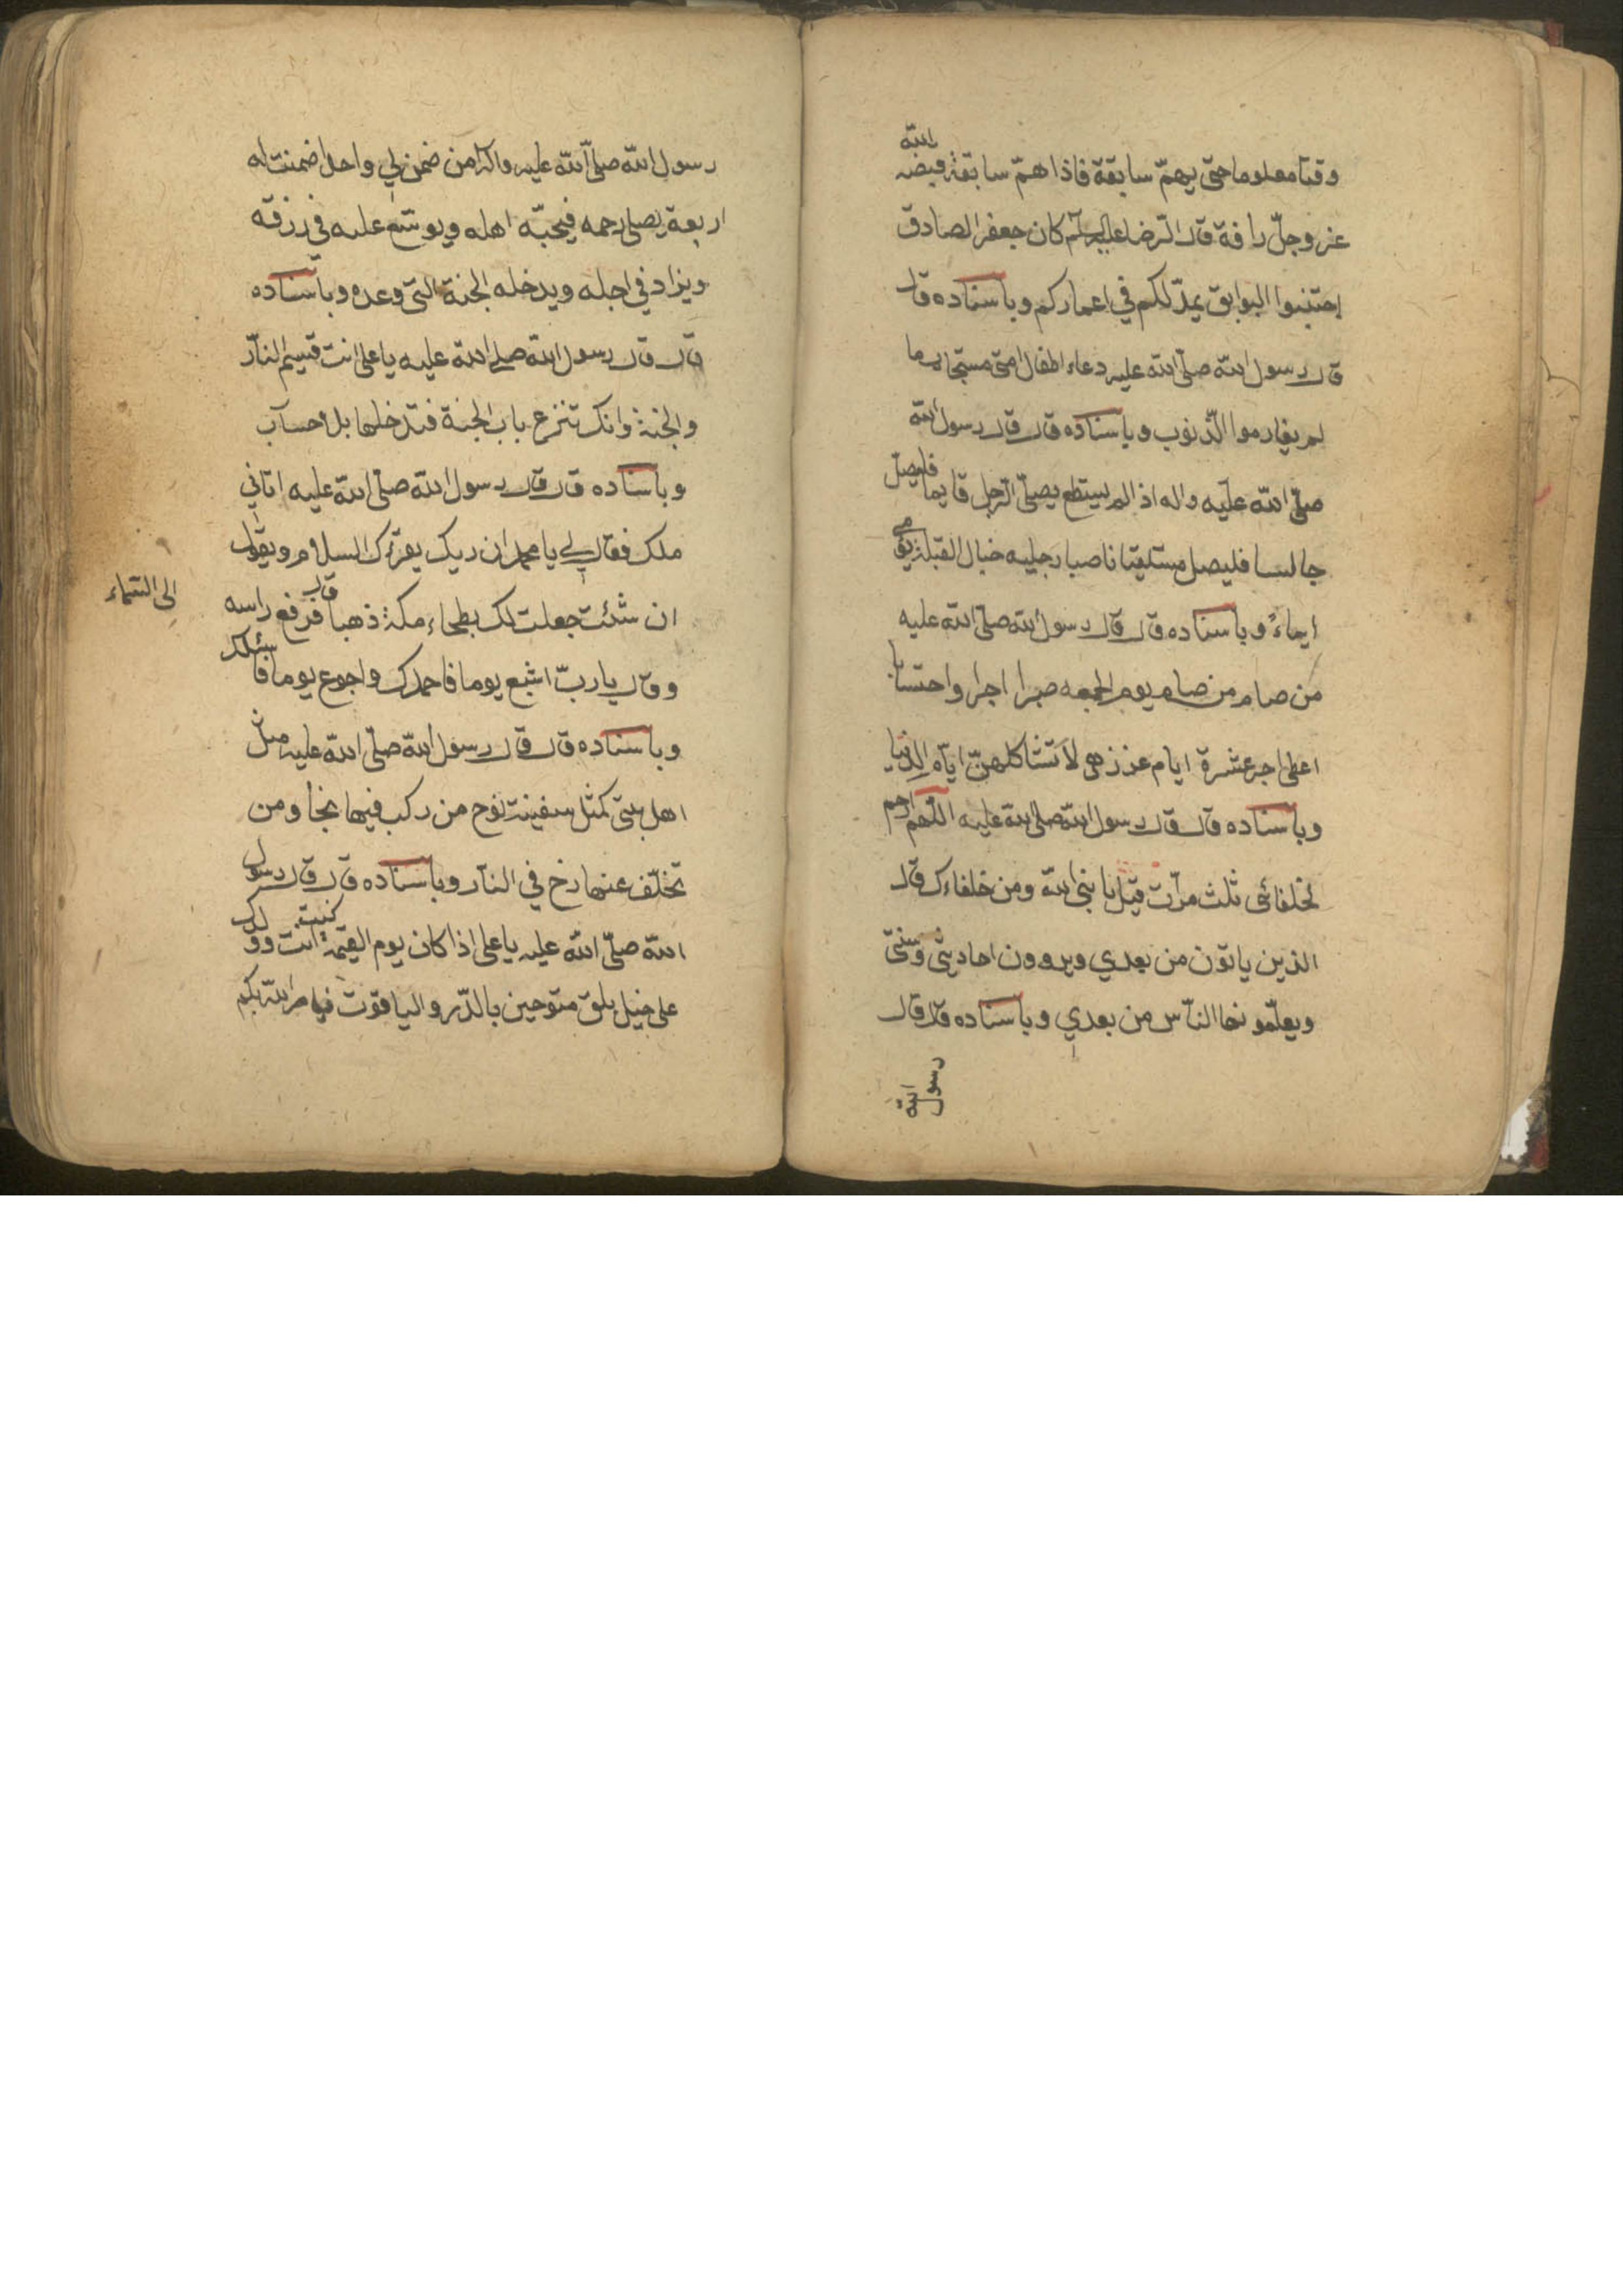 وقتا معلوما حتى يهمّ سابقة فاذا همّ سابقة قبضه الله
عز وجلّ رافة قال الرضا عليه السلم كان جعفر الصادق
اجتنبوا البوايق يمدّ لكم في اعماركم وباسناده قال
قال رسول الله صلّى الله عليه دعاء اطفال امتى مستجاب ما
لم يقارموا الذّنوب وباسناده قال قال رسول الله
صلّى الله عليه واله اذا لم يستطع يصلّى الرّجل قايما فليصلّ
جالسا فليصل مستلقيا ناصبا رجليه حيال القبلة يومى
ايماءً وباسناده قال قال رسول الله صلّى الله عليه
من صام من صام يوم الجمعه صبرا اجرا واحتسابا
اعطى اجر عشرة ايام غرز هى لا تشاكلهنّ ايام الدنيا
وباسناده قال قال رسول الله صلّى الله عليه اللّهم ارحم
لخلفائى ثلث مرّات قيل يا بنى الله ومن خلفاءك قال
الذين ياتون من بعدي ويروون احاديثى وسنتى
ويعلّمونها النّاس من بعدي وباسناده قال قال
رسول الله
رسول الله صلّى الله عليه واله من ضمن لي واحدا ضمنت له
اربعة يصل رحمه فيحبّه اهله ويوسّع عليه في رزقه
ويزاد في اجله ويدخله الجنة التى وعده وباسناده
قال قال رسول الله صلى الله عليه يا على انت قسيم النار
والجنة وانك تنزع باب الجنة فتدخلها بلا حساب
وباسناده قال قال رسول الله صلّى الله عليه اتاني
ملك فقال لي يا محمد ان ربك يقرئك السلام ويقول
ان شئت جعلت لك بطحاء مكة ذهبا قال فرفع راسه
الى السّماء
وقال يا ربّ اشبع يوما فاحمدك واجوع يوما فاسئلك
وباسناده قال قال رسول الله صلّى الله عليه مثل
اهل بيتى كمثل سفينة نوح من ركب فيها نجا ومن
تخلّف عنها زخ في النّار وباسناده قال قال رسول
الله صلّى الله عليه يا على اذا كان يوم القيمة كنت انت وولدك
على خيل بلق متوجين بالدّر والياقوت فيامر الله بكم